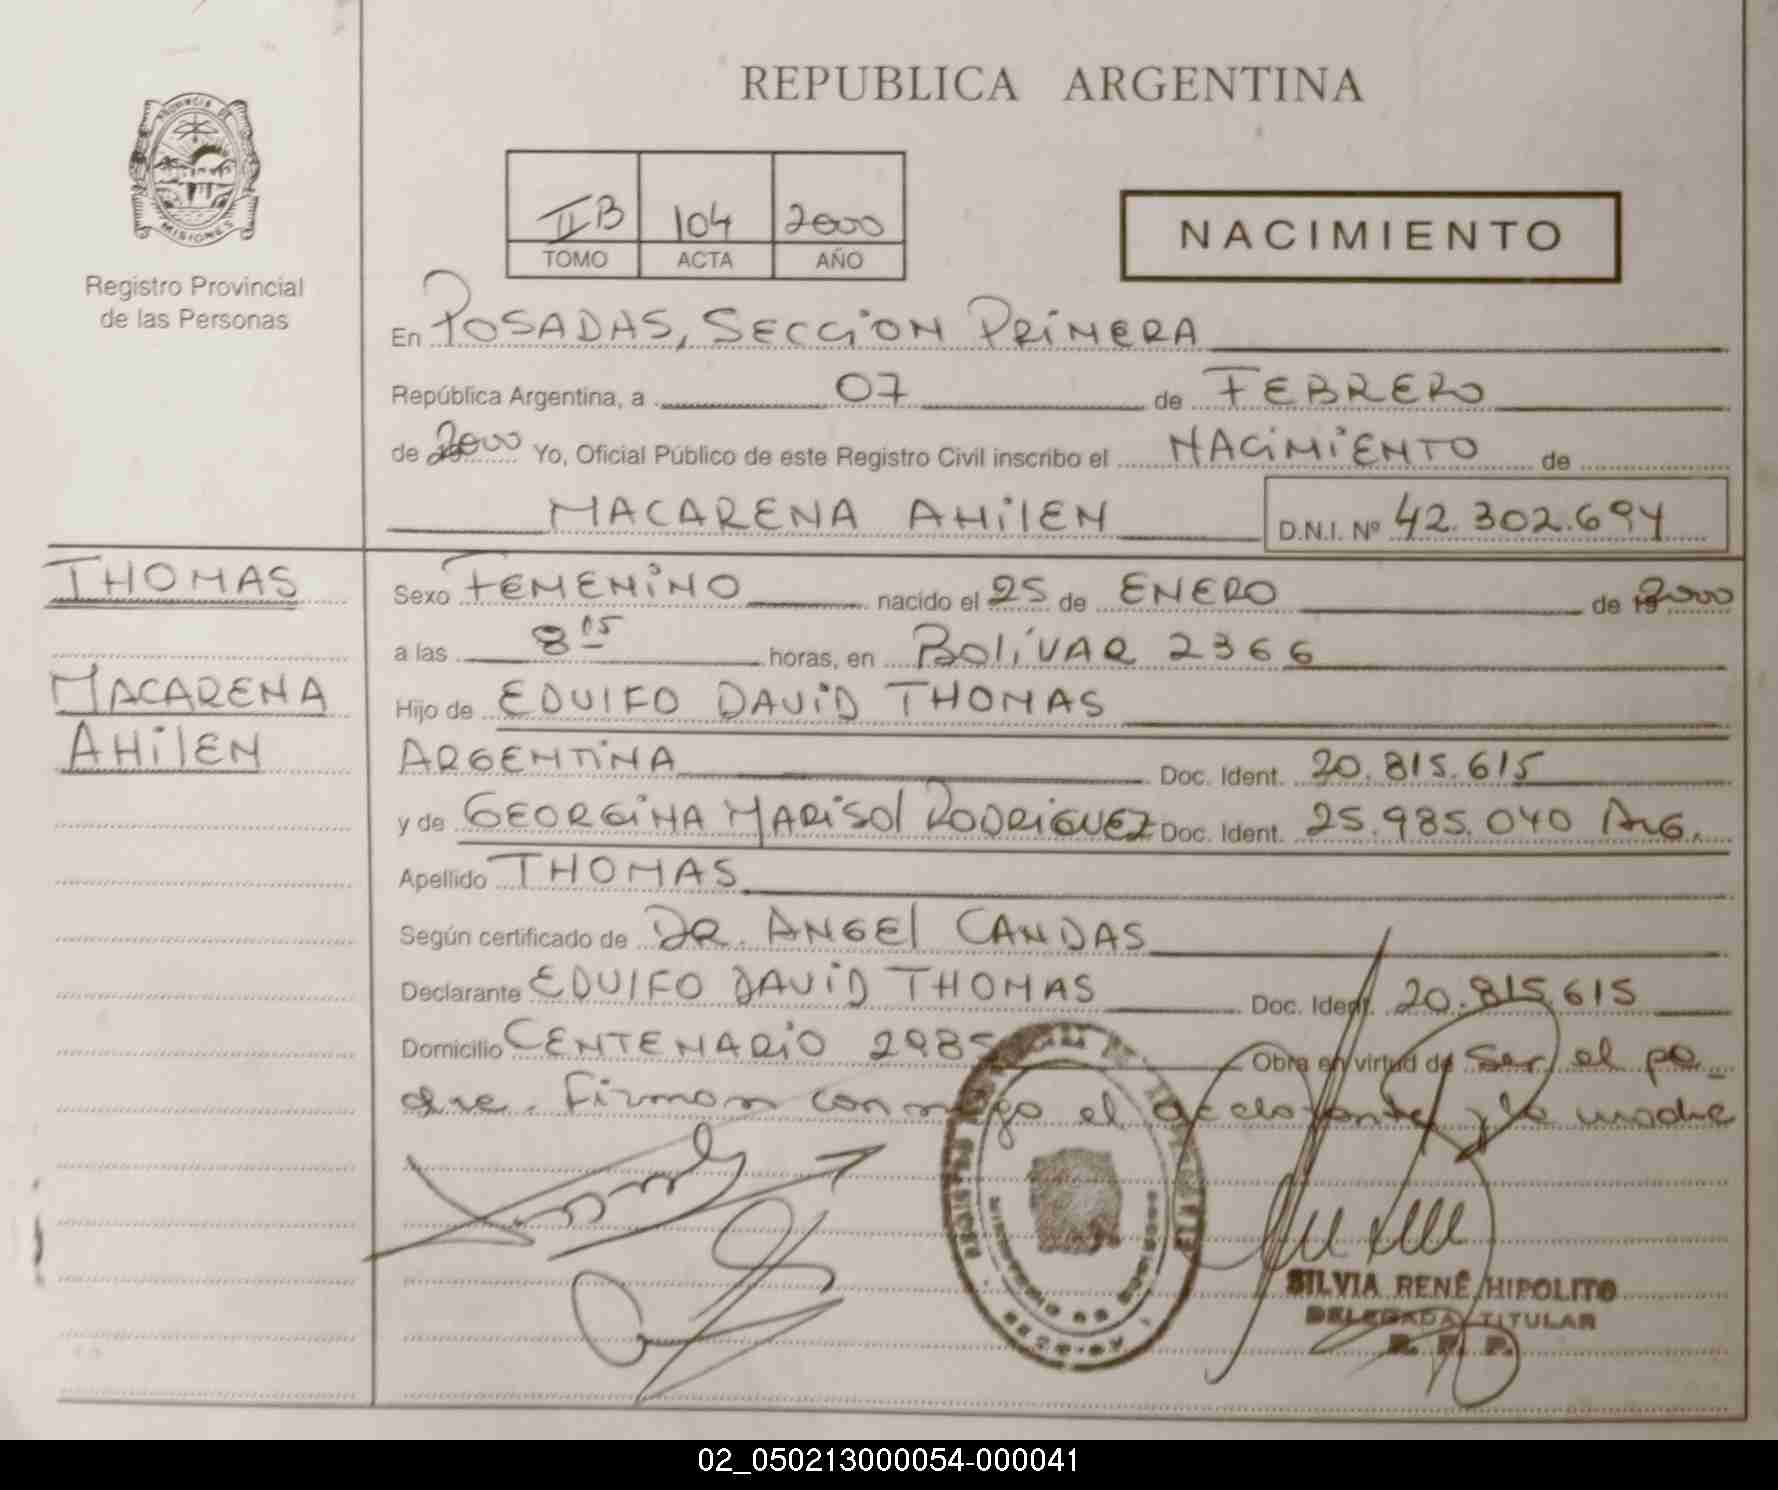 REPUBLICA ARGENTINA
PROVINCIA DE
MISIONES
Registro Provincial
de las Personas
II B 104 2000
TOMO ACTA AÑO
NACIMIENTO
En POSADAS, SECCION PRIMERA
República Argentina, a 07 de FEBRERO
de 2000 Yo, Oficial Público de este Registro Civil inscribo el NACIMIENTO de
MACARENA AHILEN D.N.I. Nº 42.302.694
THOMAS
MACARENA
AHILEN
Sexo FEMENINO nacido el 25 de ENERO de 2000
a las 8 15 horas, en BOLIVAR 2366
Hijo de EDUIFO DAVID THOMAS
ARGENTINA Doc. Ident. 20.815.615
y de GEORGINA MARISOL RODRIGUEZ Doc. Ident. 25.985.040 ARG.
Apellido THOMAS
Según certificado de DR. ANGEL CANDAS
Declarante EDUIFO DAVID THOMAS Doc. Ident. 20.815.615
Domicilio CENTENARIO 2985 Obra en virtud de ser el pa_
dre. Firman conmigo el declarante y la madre
SILVIA RENÉ HIPOLITO
DELEGADA TITULAR
R. P. P.
02_050213000054-000041